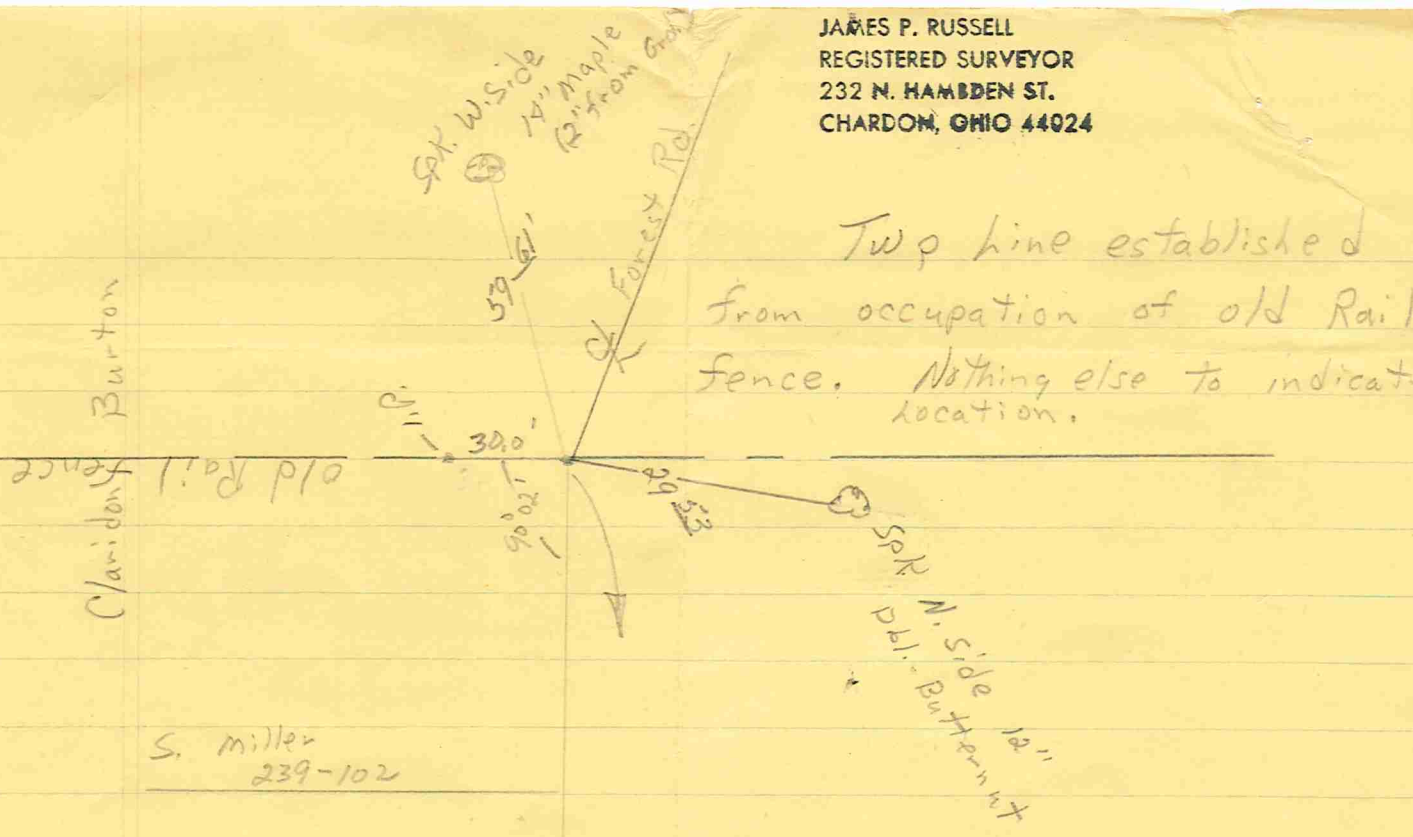 JAMES P. RUSSELL
REGISTERED SURVEYOR
232 N. HAMBDEN ST.
CHARDON, OHIO 44024
Spk. W. Side
14" Maple
(2" from
℄ Forest Rd.
59.61'
Twp Line established
from occupation of old Rail
fence. Nothing else to indicate
Location.
Burton
Claridon
old Rail fence
I.P.
30.0'
90°02'
29.53
Spk N. Side 12"
Dbl. Butternut
S. Miller
239-102